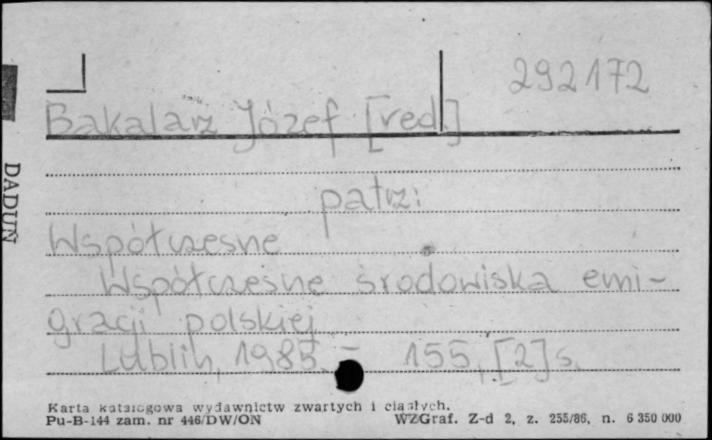 292172
Bakalarz Józef [red.]
patrz:
Współczesne
Współczesne środowiska emi-
gracji polskiej
Lublin, 1985. - 155, [2] s.
DADUN
Karta katalogowa wydawnictw zwartych i ciągłych.
Pu-B-144 zam. nr 446/DW/ON WZGraf. Z-d 2, z. 255/86, n. 6 350 000